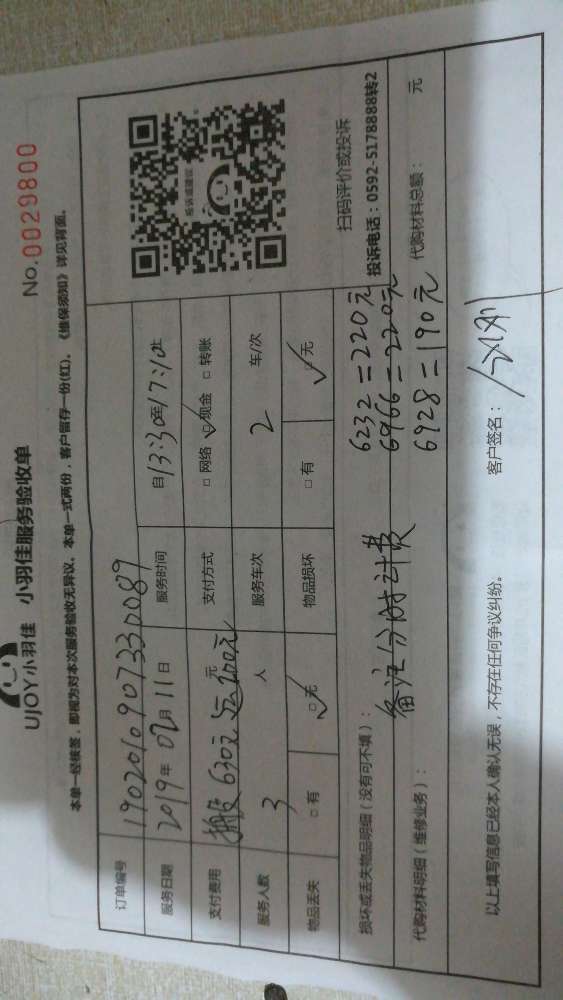 UJOY小羽佳 小羽佳服务验收单
No. 0029800
本单一经核签，即视为对本次服务验收无异议。本单一式两份，客户留存一份(红)。《维保须知》详见背面。
订单编号 1902010907330089
服务日期 2019年 02月 11日 服务时间 自13:30至17:10止
支付费用 搬皮 630元 返200元 元 支付方式 □ 网络 □ 现金 □ 转账
服务人数 3 人 服务车次 2 车/次
物品丢失 □ 有 □ 无 物品损坏 □ 有 □ 无
投诉或建议
扫码评价或投诉
投诉电话：0592-5178888转2
损坏或丢失物品明细（没有可不填）：
6232 = 220元
备注分时计费 6966 = 220元
6928 = 190元
代购材料明细（维修业务）： 代购材料总额： 元
以上填写信息已经本人确认无误，不存在任何争议纠纷。 客户签名：